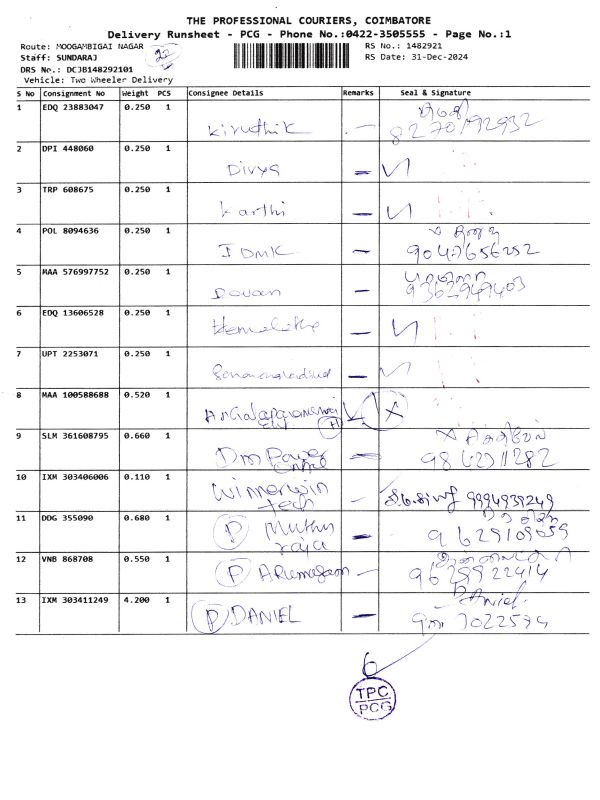 THE PROFESSIONAL COURIERS, COIMBATORE
Delivery Runsheet - PCG - Phone No.:0422-3505555 - Page No.:1
Route: MOOGAMBIGAI NAGAR 22 RS No.: 1482921
Staff: SUNDARAJ RS Date: 31-Dec-2024
DRS No.: DCJB148292101
Vehicle: Two Wheeler Delivery
S No Consignment No Weight PCS Consignee Details Remarks Seal & Signature
1 EDQ 23883047 0.250 1
Kiruthik 8270192932
2 DPI 448060 0.250 1
Divya
3 TRP 608675 0.250 1
Karthi
4 POL 8094636 0.250 1
IDMK 9047656252
5 MAA 576997752 0.250 1
9362949403
6 EDQ 13606528 0.250 1
7 UPT 2253071 0.250 1
8 MAA 100588688 0.520 1
9 SLM 361608795 0.660 1
Dm Power
10 IXM 303406006 0.110 1
Winnerwin 9994939249
tech
11 DDG 355090 0.680 1
P Muthu 9629109059
raja
12 VNB 868708 0.550 1
P ARumugam 9628922414
13 IXM 303411249 4.200 1 Daniel
P DANIEL
6
TPC
PCG